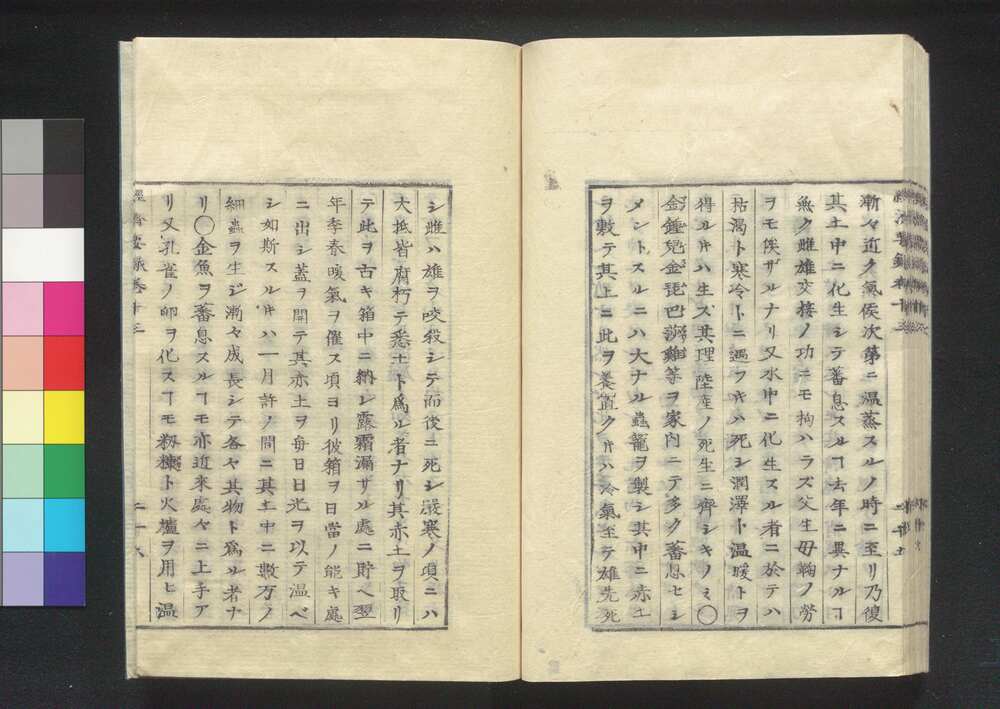 漸々近ク氣侯次第ニ温蒸スルノ時ニ至リ乃復
其土中ニ化生シテ蕃息スルヿ去年ニ異ナルヿ
無ク雌雄交接ノ功ニモ拘ハラズ父生母鞠ノ勞
ヲモ俟ザルナリ又水中ニ化生スル者ニ於テハ
枯渇ト寒冷トニ遇フキハ死シ潤澤ト温暖トヲ
得ルキハ生ズ其理陸産ノ死生ニ齊シキノミ〇
金鍾兒金琵琶莎雞等ヲ家内ニテ多ク蕃息セシ
メントスルニハ大ナル蟲籠ヲ製シ其中ニ赤土
ヲ敷テ其上ニ此ヲ養置クキハ冷氣至テ雄先死
シ雌ハ雄ヲ咬殺シテ而後ニ死シ嚴寒ノ頃ニハ
大抵皆腐朽テ悉土ト爲ル者ナリ其赤土ヲ取リ
テ此ヲ古キ箱中ニ納レ露霜漏ザル處ニ貯ヘ翌
年季春暖氣ヲ催ス頃ヨリ彼箱ヲ日當ノ能キ處
ニ出シ蓋ヲ開テ其赤土ヲ毎日日光ヲ以テ温ベ
シ如斯スルキハ一月許ノ間ニ其土中ニ數万ノ
細蟲ヲ生ジ漸々成長シテ各々其物ト爲ル者ナ
リ〇金魚ヲ蕃息スルヿモ亦近来處々ニ上手ア
リ又孔雀ノ卵ヲ化スヿモ籾糠ト火爐ヲ用ヒ温